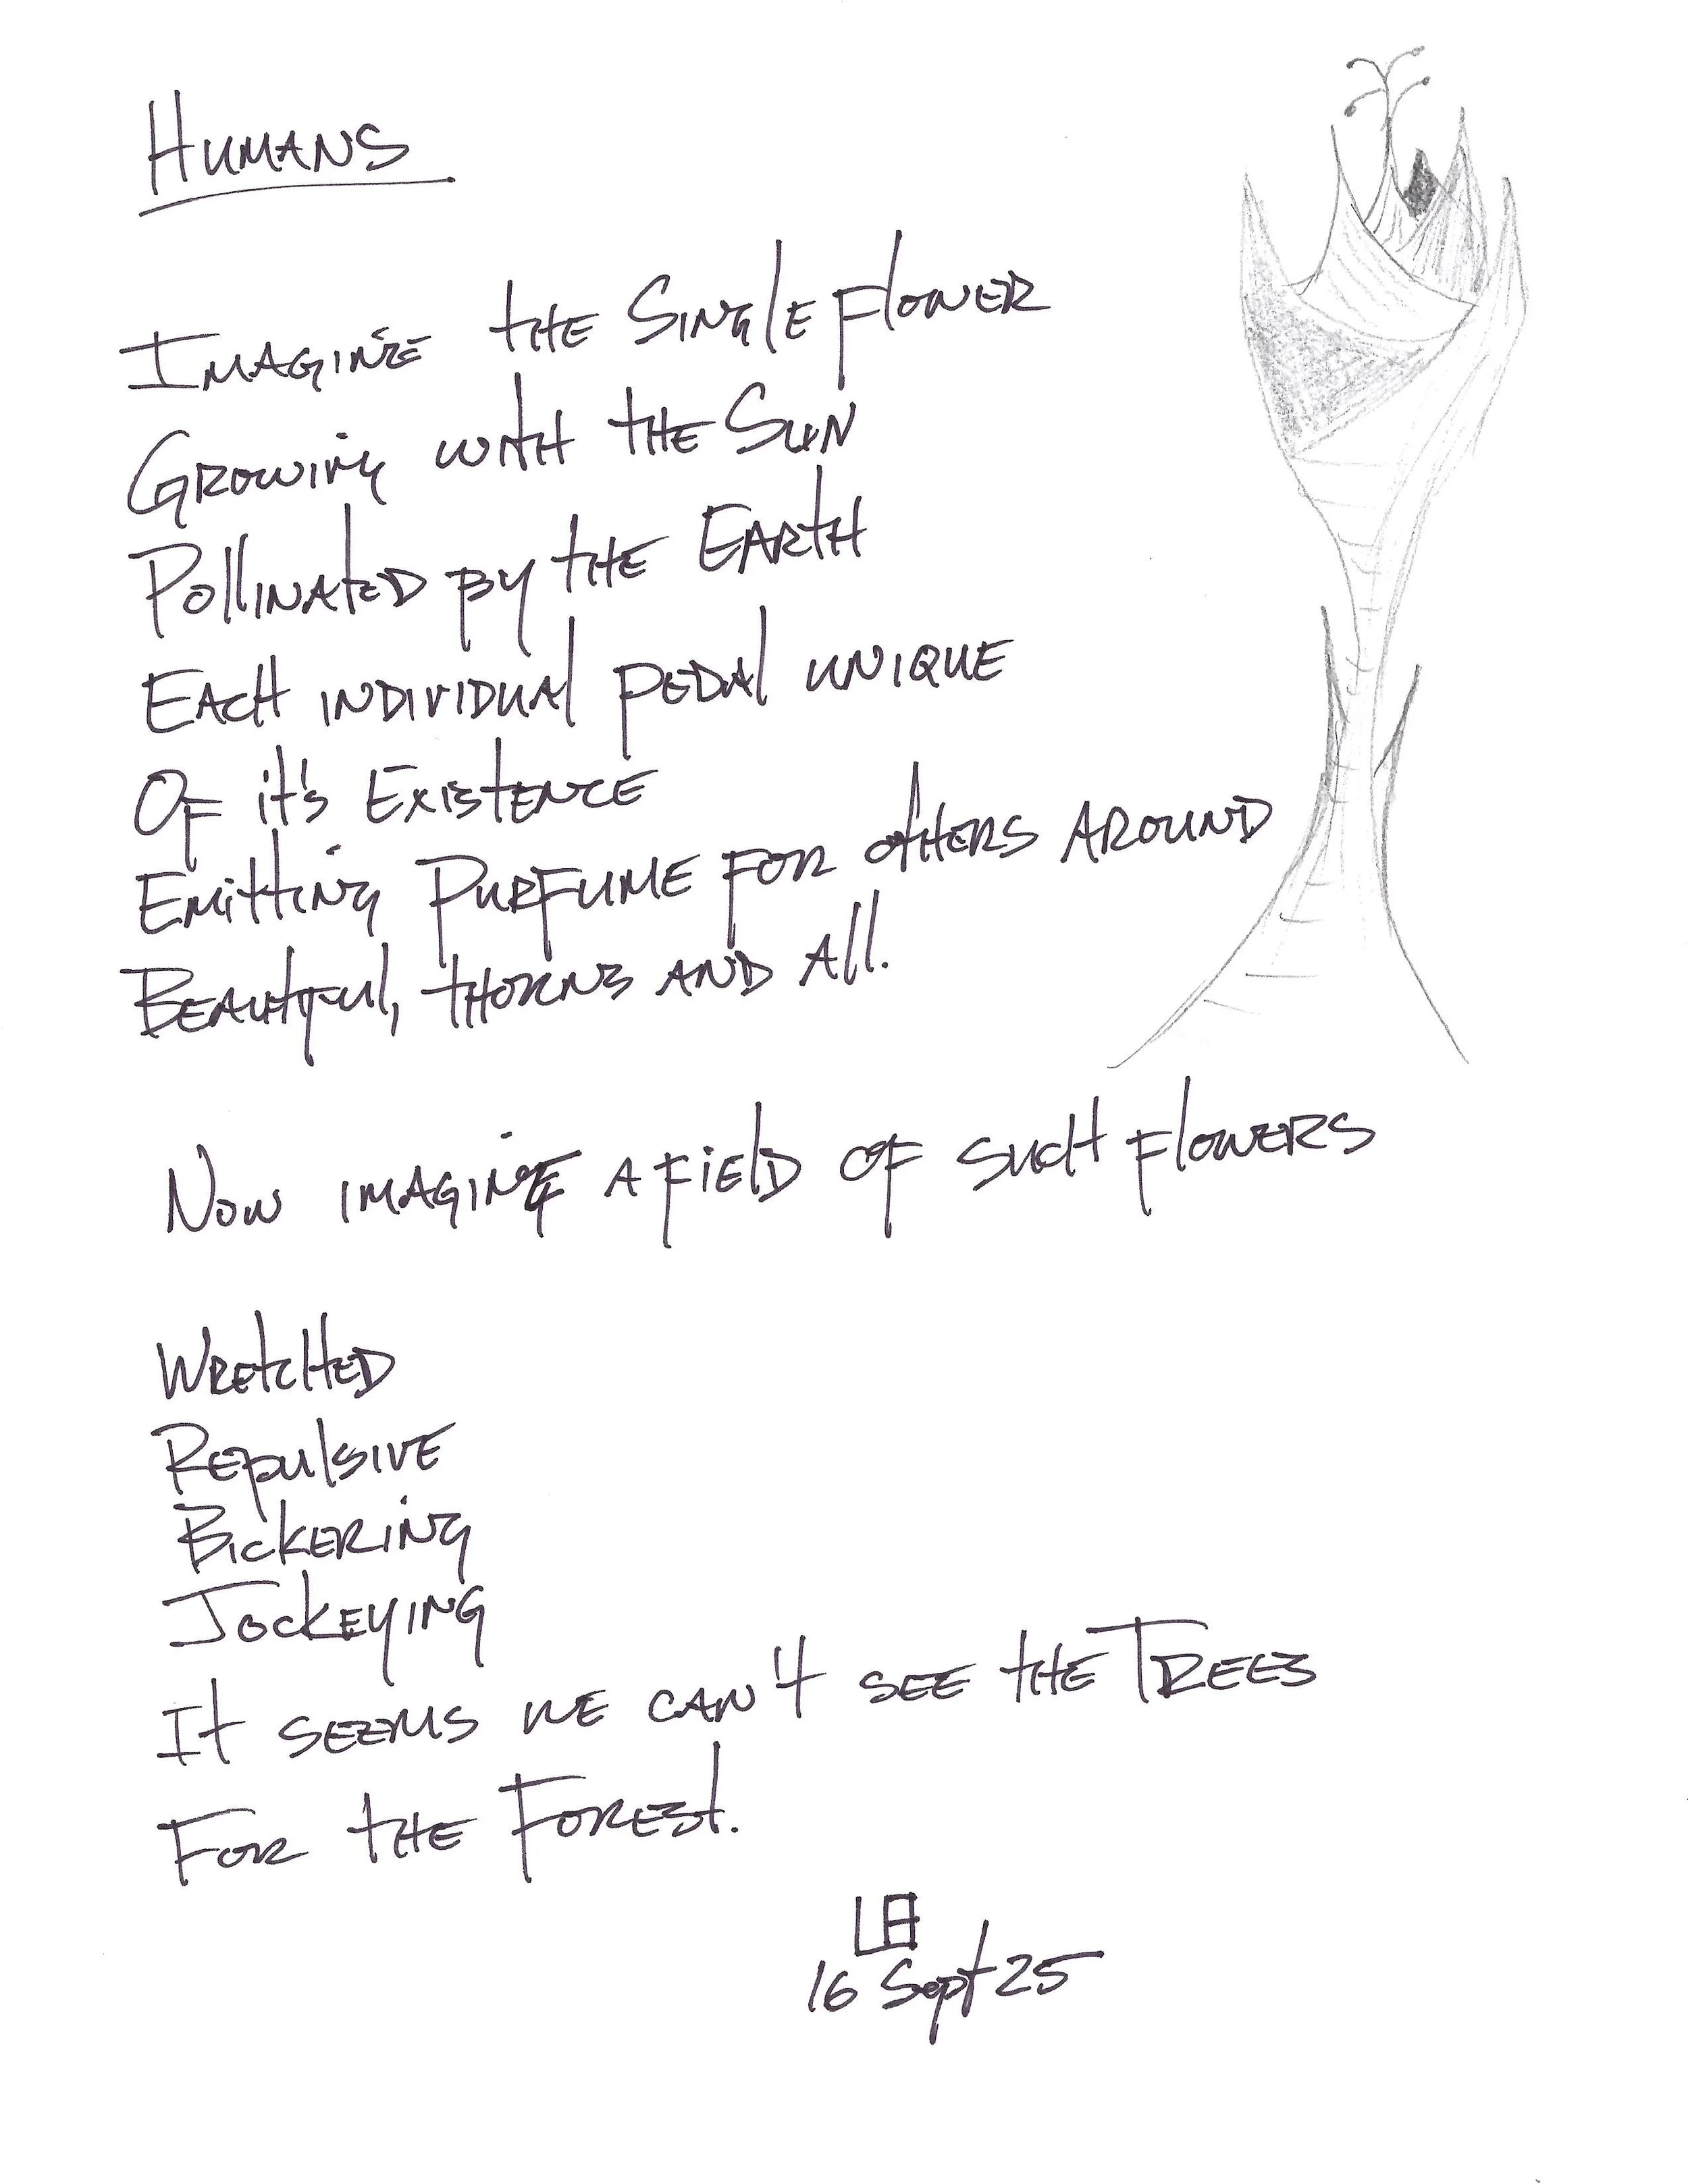 Humans
Imagine the Single Flower
Growing with the Sun
Pollinated by the Earth
Each individual pedal unique
Of it's Existence
Emitting Purfume for others around
Beautiful, thorns and all.
Now imagine a field of such flowers
Wretched
Repulsive
Bickering
Jockeying
It seems we can't see the Trees
For the Forest.
16 Sept 25